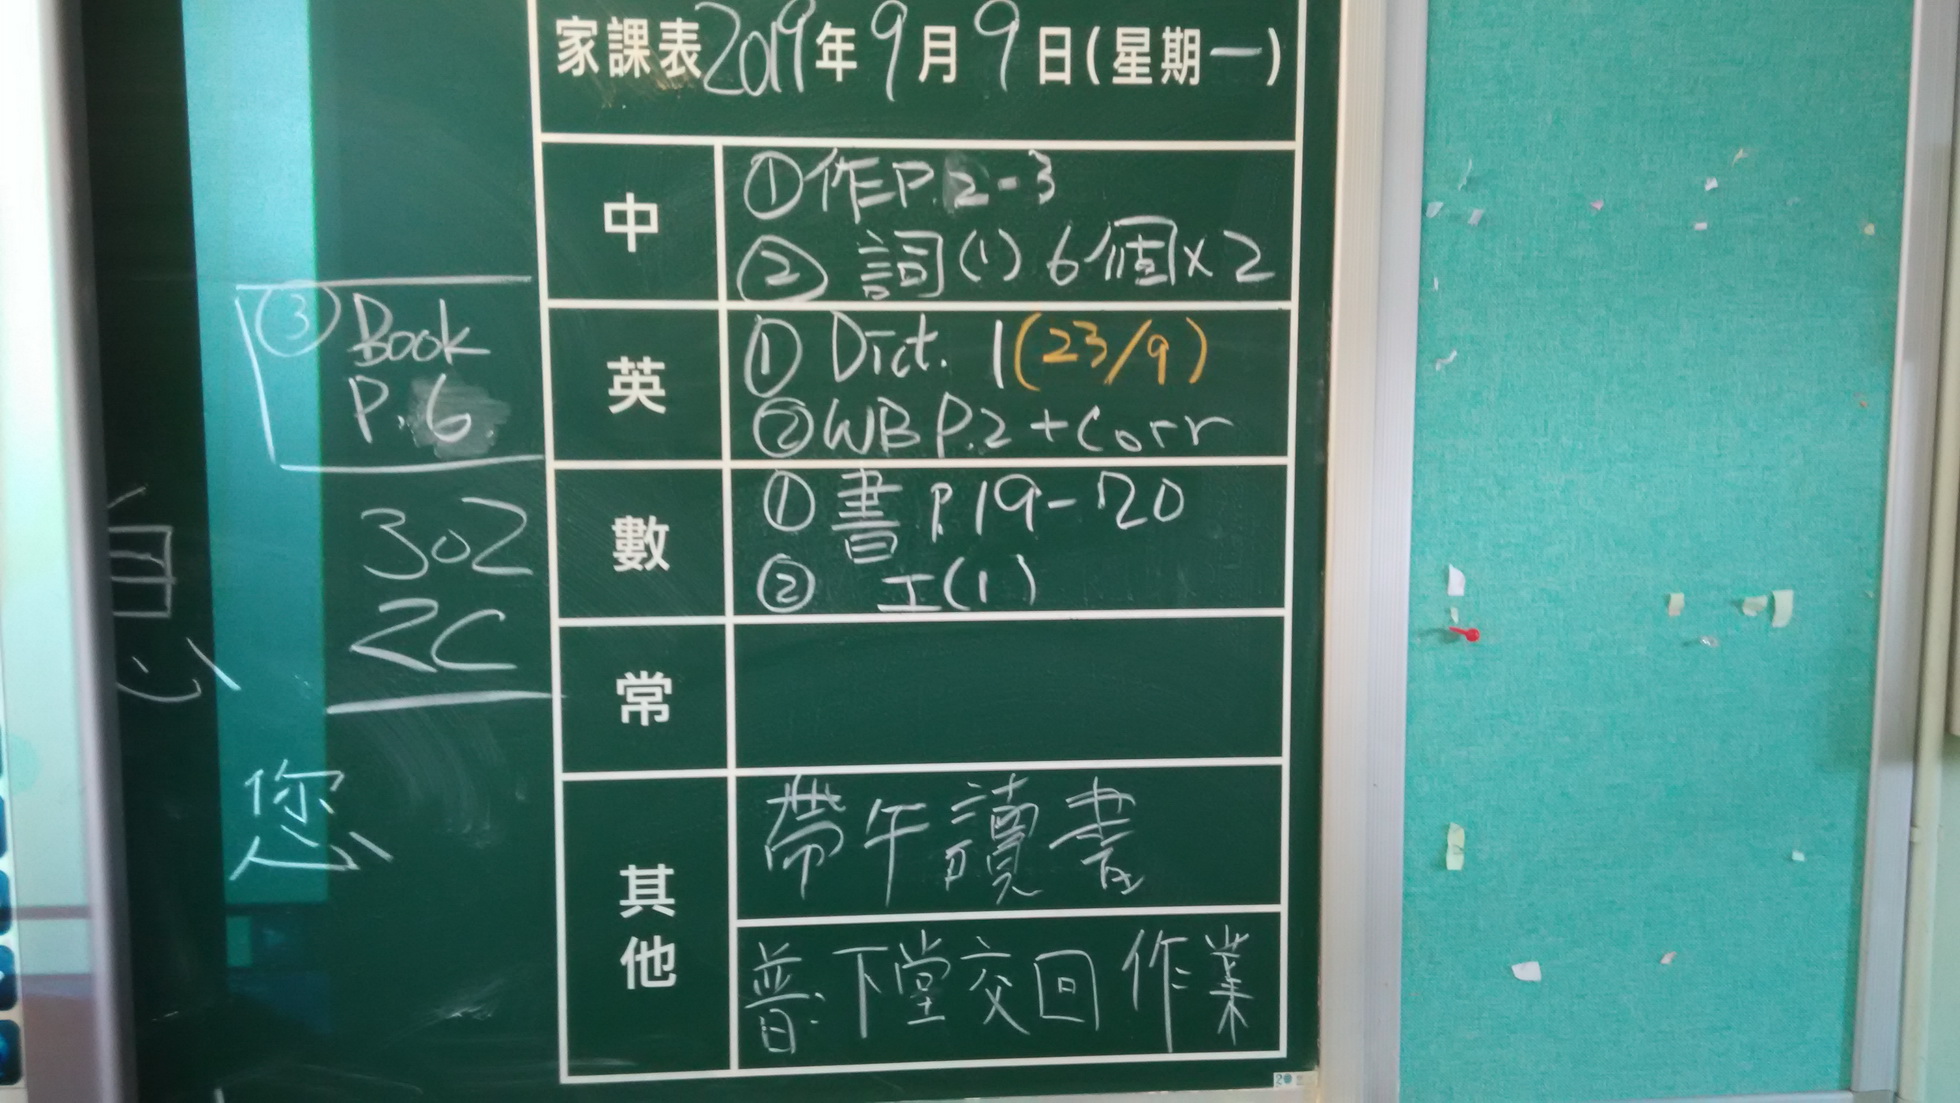 家課表2019年9月9日(星期一)
中
①作P.2-3
②詞(1)6個x2
英
①Dict. 1(23/9)
②WB P.2+Corr
③Book
P.6
數
①書P.19-20
②工(1)
302
2C
常
其他
帶午讀書
普:下堂交回作業
您